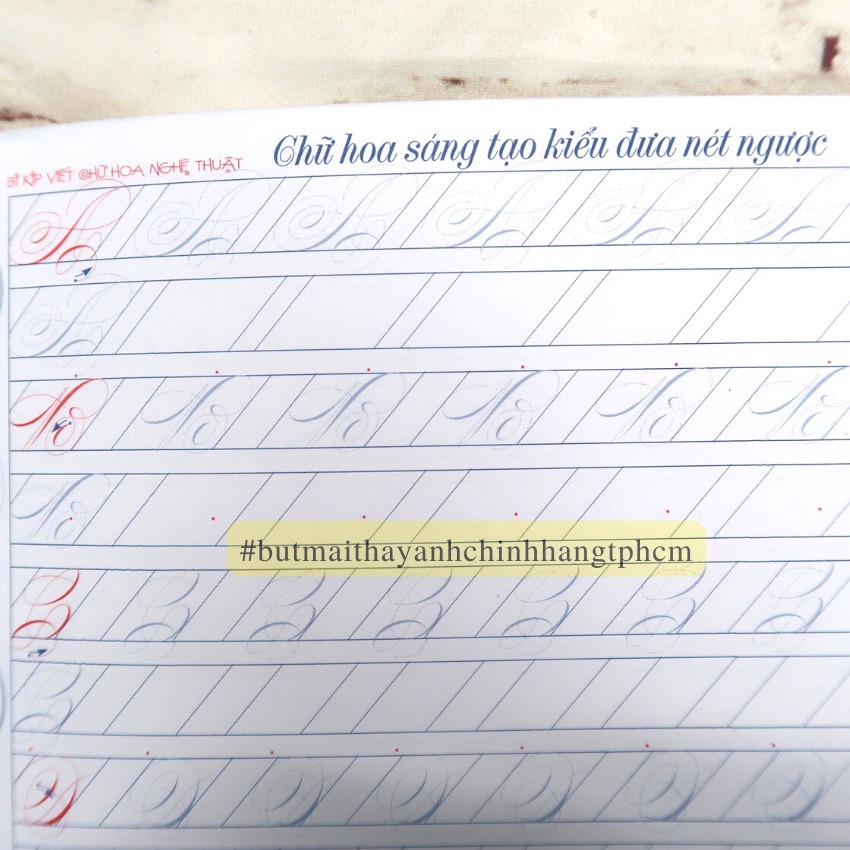 BÍ KÍP VIẾT CHỮ HOA NGHỆ THUẬT
Chữ hoa sáng tạo kiểu đưa nét ngược
#butmaithayanhchinhhangtphcm